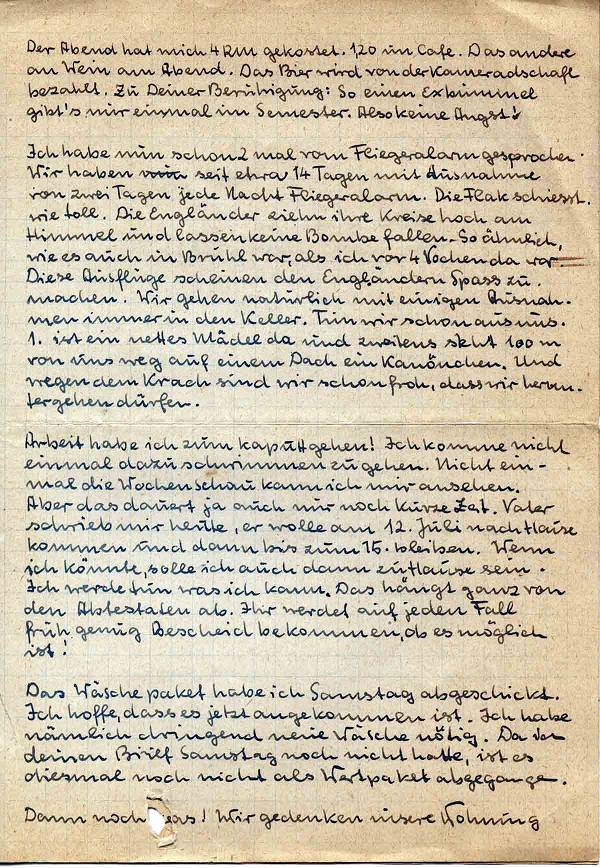 Der Abend hat mich 4 RM gekostet. 1,20 im Cafe. Das andere
an Wein am Abend. Das Bier wird von der Kameradschaft
bezahlt. Zu Deiner Beruhigung: So einen Exbummel
gibt's nur einmal im Semester. Also keine Angst!
Ich habe nun schon 2 mal vom Fliegeralarm gesprochen.
Wir haben nun seit etwa 14 Tagen mit Ausnahme
von zwei Tagen jede Nacht Fliegeralarm. Die Flak schiesst
wie toll. Die Engländer ziehn ihre Kreise hoch am
Himmel und lassen keine Bombe fallen. So ähnlich,
wie es auch in Brühl war, als ich vor 4 Wochen da war
Diese Ausflüge scheinen den Engländern Spass zu
machen. Wir gehen natürlich mit einigen Ausnah-
men immer in den Keller. Tun wir schon aus uns.
1. ist ein nettes Mädel da und zweitens steht 100 m
von uns weg auf einem Dach ein Kanönchen. Und
wegen dem Krach sind wir schon froh, dass wir herun-
tergehen dürfen.
Arbeit habe ich zum kaputtgehen! Ich komme nicht
einmal dazu schwimmen zu gehen. Nicht ein-
mal die Wochenschau kann ich mir ansehen.
Aber das dauert ja auch nur noch kurze Zeit. Vater
schrieb mir heute, er wolle am 12. Juli nach Hause
kommen und dann bis zum 15. bleiben. Wenn
ich könnte, solle ich auch dann zu Hause sein.
Ich werde tun was ich kann. Das hängt ganz von
den Abtestaten ab. Ihr werdet auf jeden Fall
früh genug Bescheid bekommen, ob es möglich
ist!
Das Wäschepaket habe ich Samstag abgeschickt.
Ich hoffe, dass es jetzt angekommen ist. Ich habe
nämlich dringend neue Wäsche nötig. Da ich
deinen Brief Samstag noch nicht hatte, ist es
diesmal noch nicht als Wertpaket abgegange.
Dann noch was! Wir gedenken unsere Wohnung